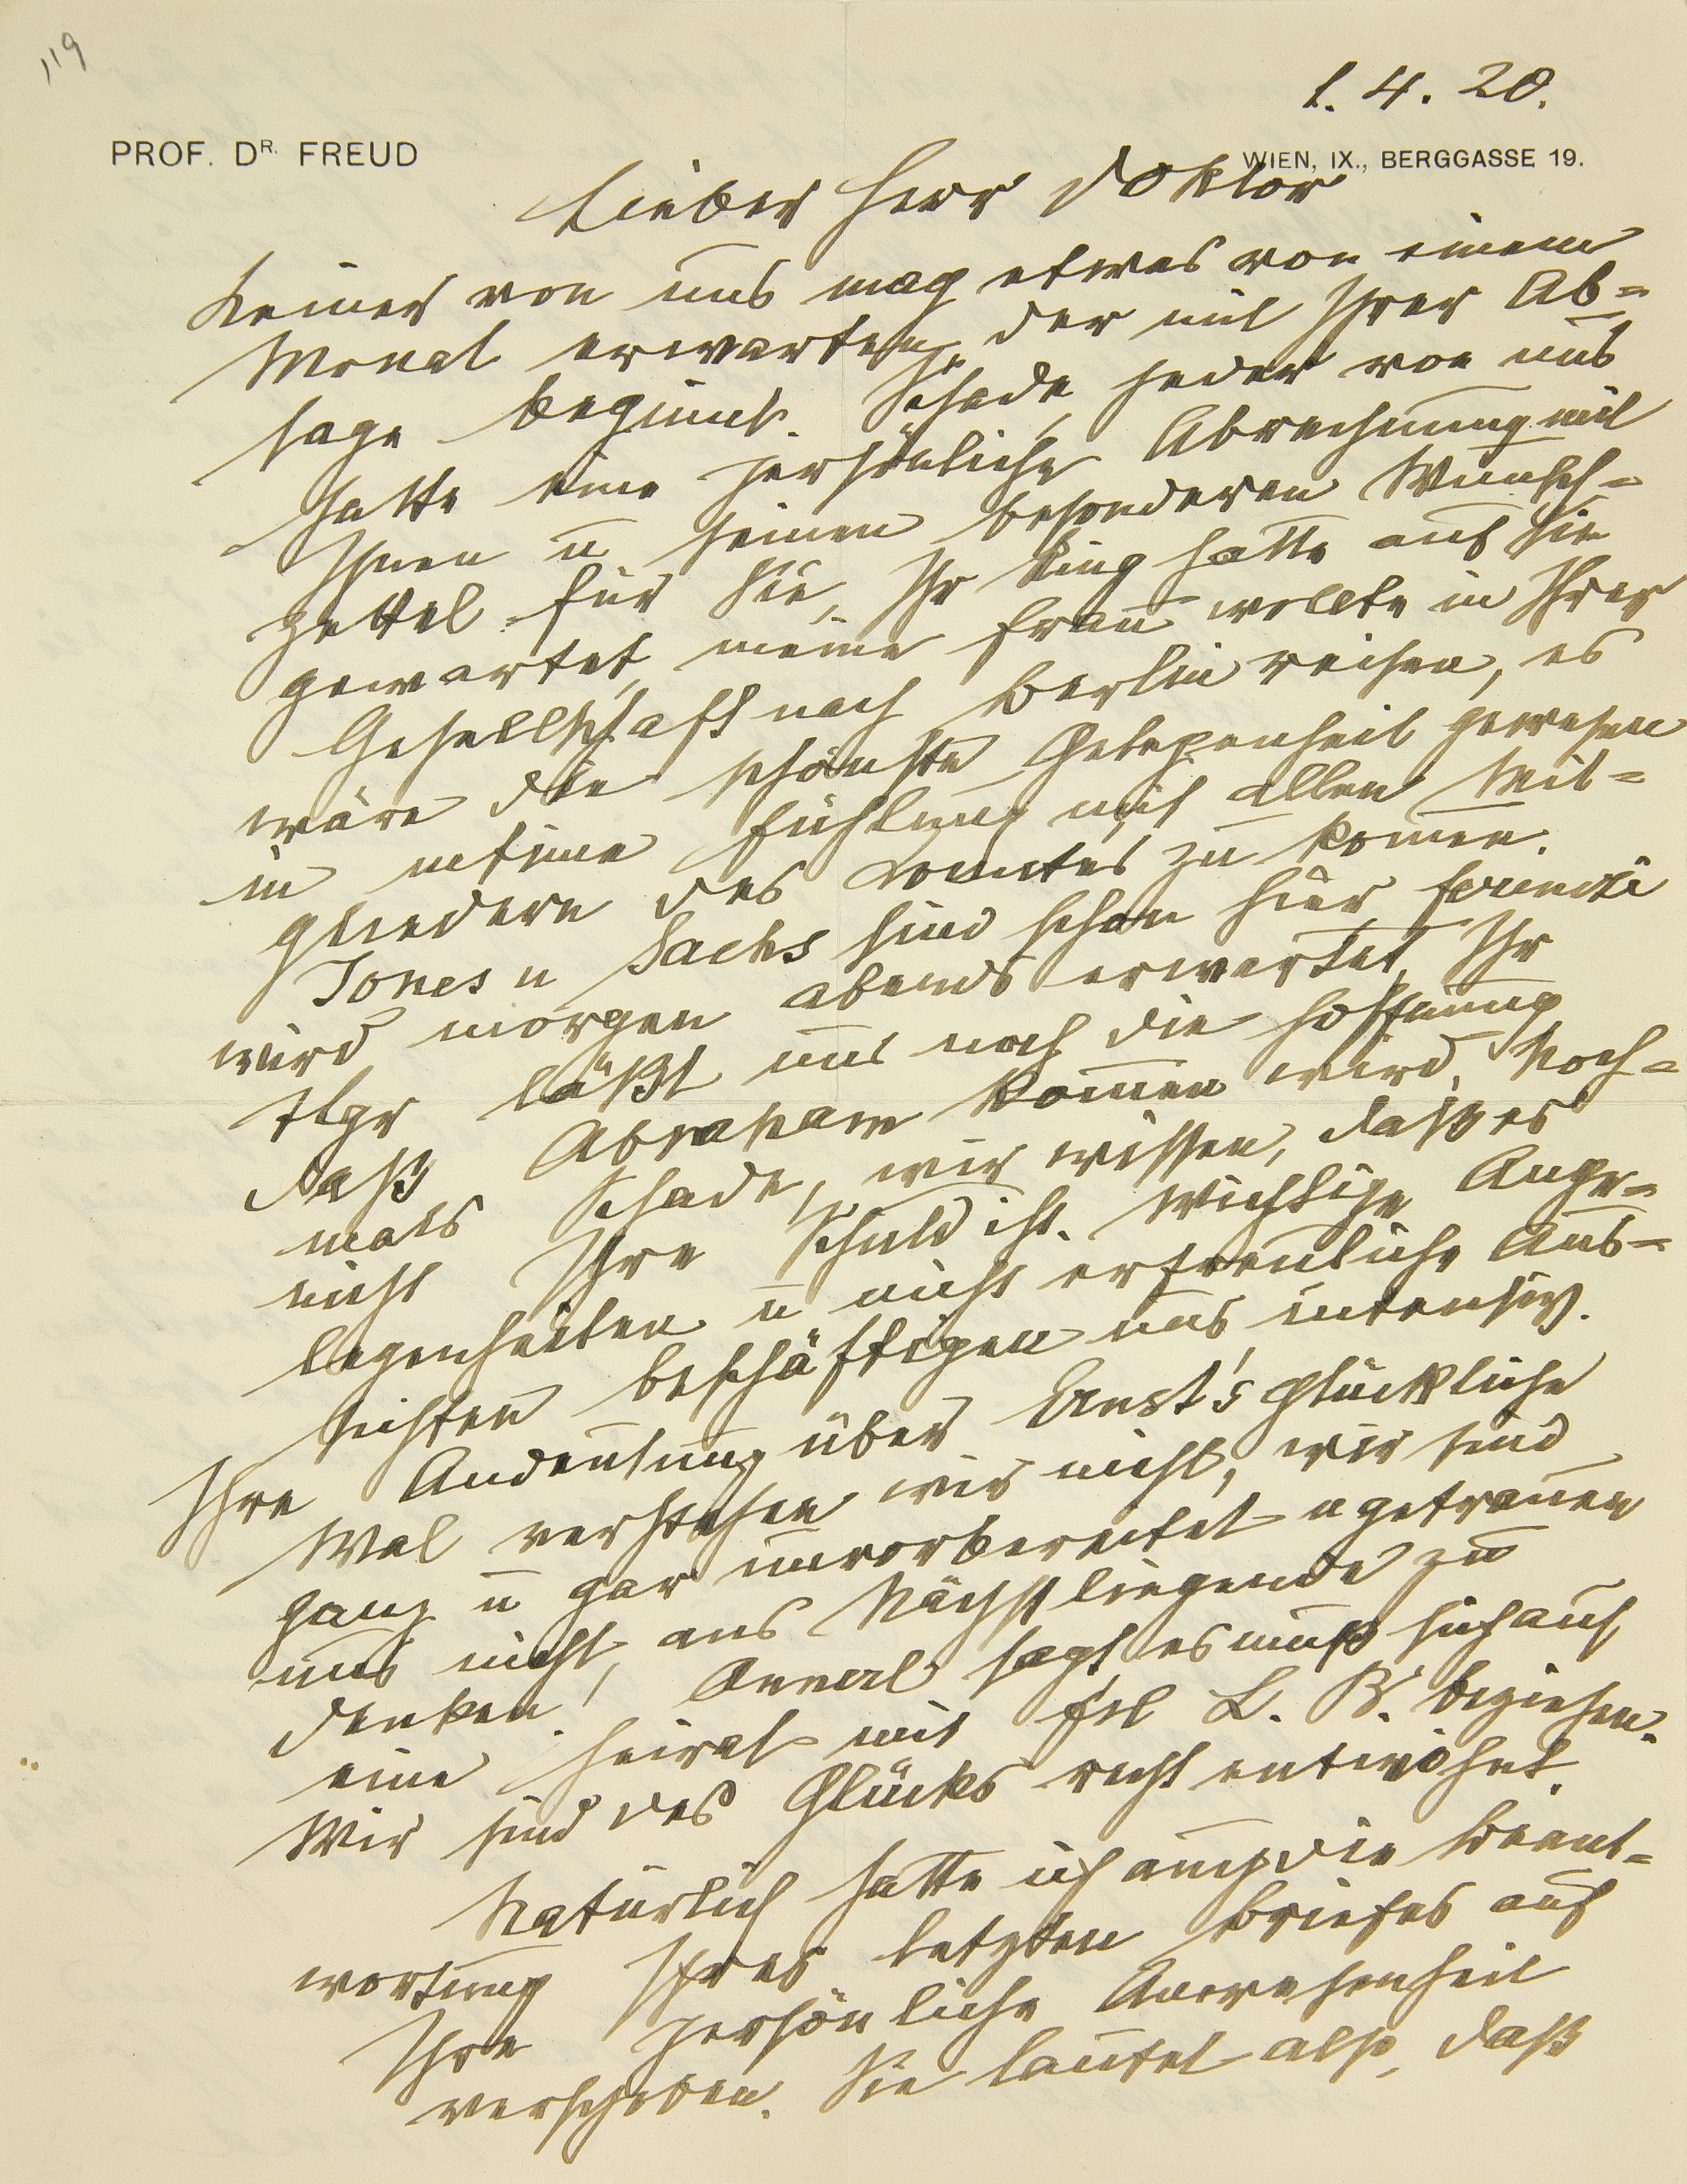 119
1. 4. 20.
PROF. DR. FREUD
WIEN, IX., BERGGASSE 19.
Lieber Herr Doktor
Keiner von uns mag etwas von einem
Monat erwarten, der mit Ihrer Ab-
sage beginnt. Schade, jeder von uns
hatte eine persönliche Abrechnung mit
Ihnen u seinen besonderen Wunsch-
zettel für Sie, Ihr Ring hatte auf Sie
gewartet, meine Frau wollte in Ihrer
Gesellschaft nach Berlin reisen, es
wäre die schönste Gelegenheit gewesen
in intime Fühlung mit allen Mit-
gliedern des Comites zu komen.
Jones u Sachs sind schon hier, Ferenczi
wird morgen abends erwartet, Ihr
Tlgr läßt uns noch die Hoffnung
daß Abraham komen wird. Noch-
mals Schade, wir wissen, daß es
nicht Ihre Schuld ist. Wichtige Ange-
legenheiten u nicht erfreuliche Aus-
sichten beschäftigen uns intensiv.
Ihre Andeutung über Ernst's glückliche
Wal verstehen wir nicht, wir sind
ganz u gar unvorbereitet u getrauen
uns nicht, ans Nächstliegende zu
denken. Annerl sagt, es muß sich auf
eine Heirat mit Frl L. B. beziehen.
Wir sind des Glücks recht entwöhnt.
Natürlich hatte ich auch die Beant-
wortung Ihres letzten Briefes auf
Ihre persönliche Anwesenheit
verschoben. Sie lautet also, daß